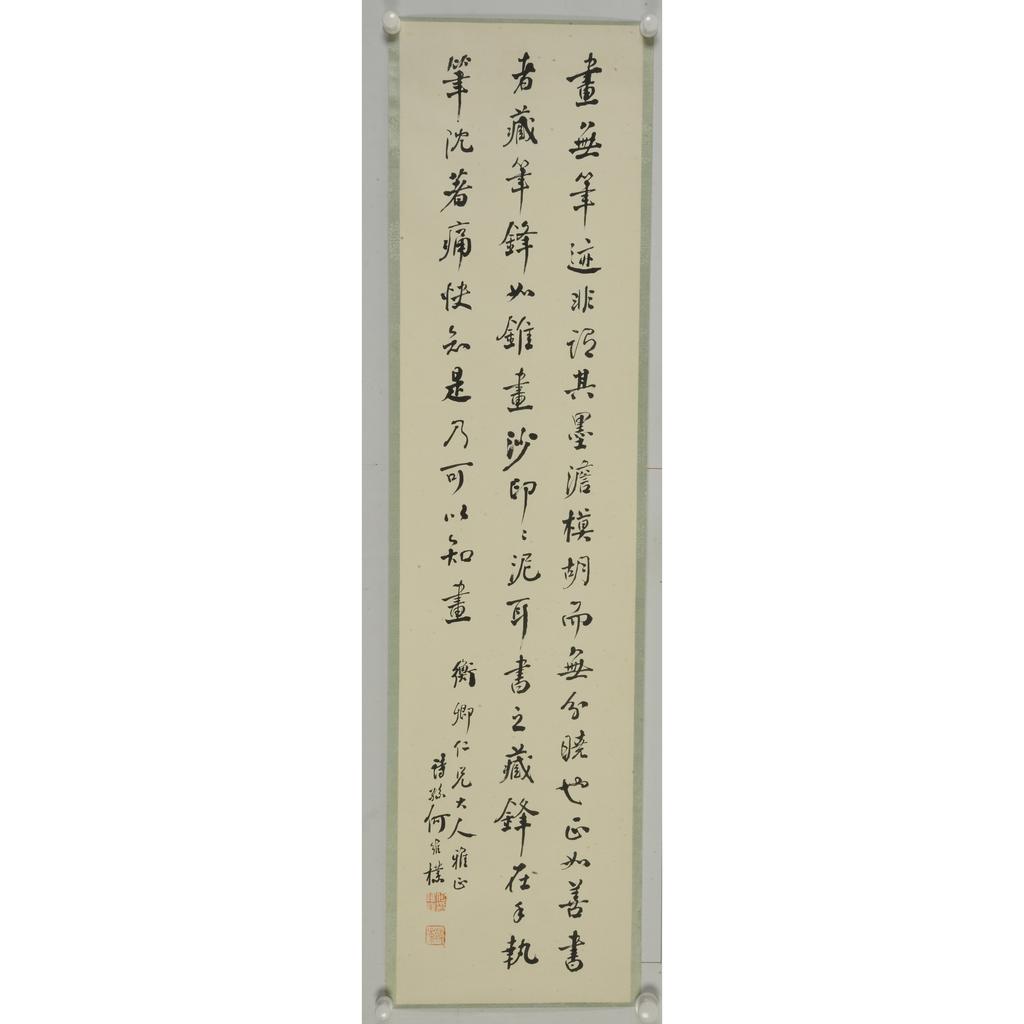 畫無筆迹非謂其墨澹模胡而無分曉也正如善書
者藏筆鋒如錐畫沙印〻泥耳書之藏鋒在手執
筆沈著痛快知是乃可以知畫
衡卿仁兄大人雅正
詩孫何維樸